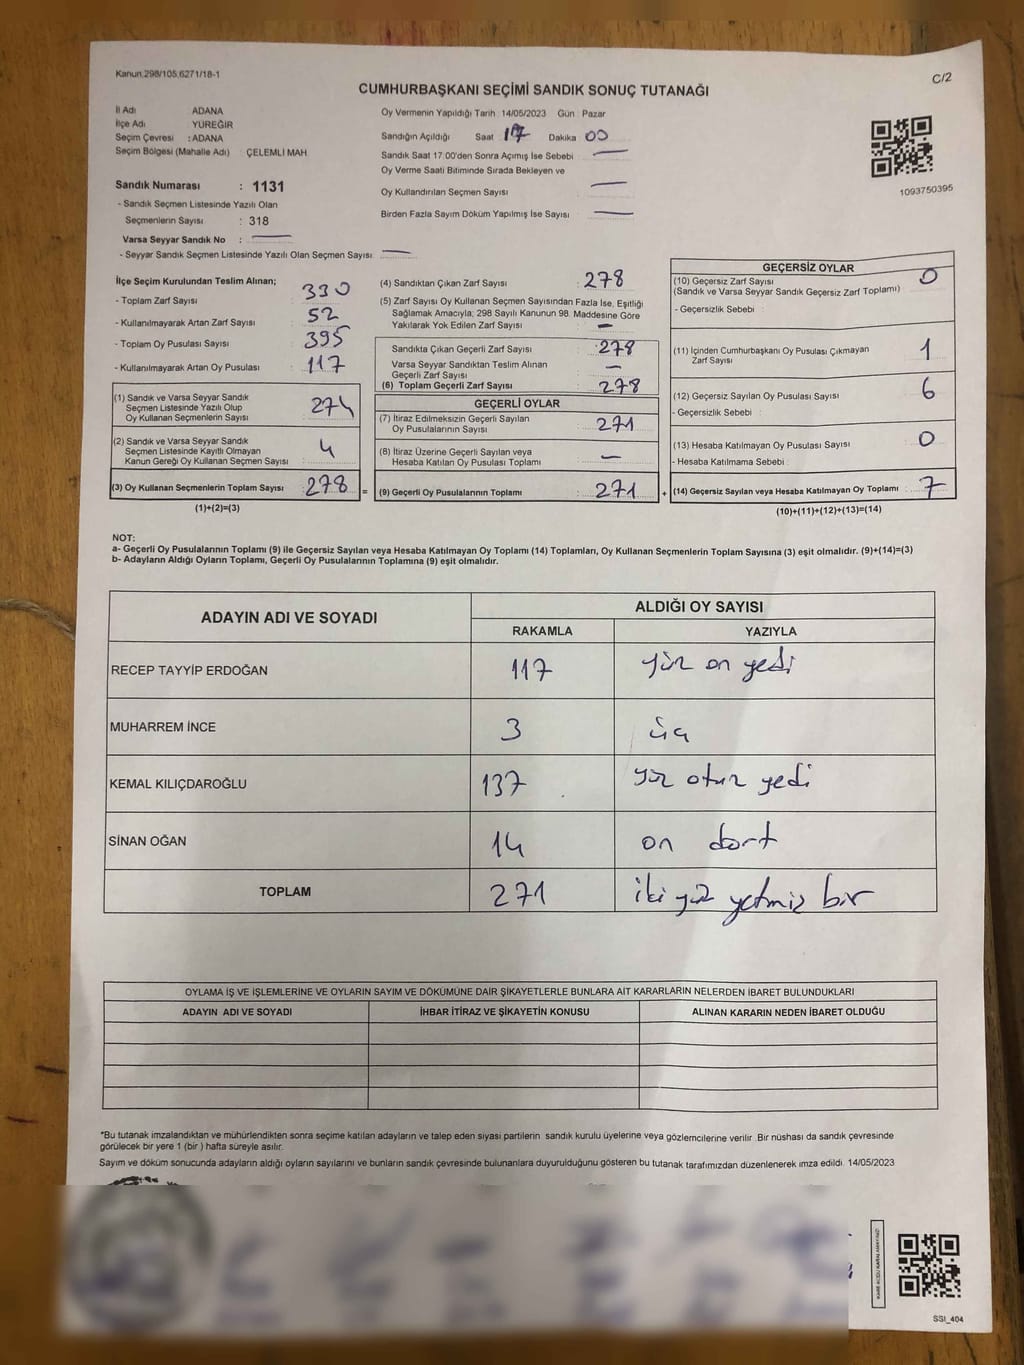 Kanun.298/105,6271/18-1
C/2
CUMHURBAŞKANI SEÇİMİ SANDIK SONUÇ TUTANAĞI
İl Adı ADANA
İlçe Adı YÜREĞİR
Seçim Çevresi : ADANA
Seçim Bölgesi (Mahalle Adı) : ÇELEMLİ MAH.
Oy Vermenin Yapıldığı Tarih : 14/05/2023 Gün : Pazar
Sandığın Açıldığı Saat 17 Dakika 00
Sandık Saat 17:00'den Sonra Açımış İse Sebebi
Oy Verme Saati Bitiminde Sırada Bekleyen ve
Oy Kullandırılan Seçmen Sayısı
Birden Fazla Sayım Döküm Yapılmış İse Sayısı
1093750395
Sandık Numarası : 1131
- Sandık Seçmen Listesinde Yazılı Olan
Seçmenlerin Sayısı : 318
Varsa Seyyar Sandık No :
- Seyyar Sandık Seçmen Listesinde Yazılı Olan Seçmen Sayısı:
İlçe Seçim Kurulundan Teslim Alınan;
- Toplam Zarf Sayısı : 330
- Kullanılmayarak Artan Zarf Sayısı : 52
- Toplam Oy Pusulası Sayısı : 395
- Kullanılmayarak Artan Oy Pusulası : 117
(1) Sandık ve Varsa Seyyar Sandık
Seçmen Listesinde Yazılı Olup
Oy Kullanan Seçmenlerin Sayısı : 274
(2) Sandık ve Varsa Seyyar Sandık
Seçmen Listesinde Kayıtlı Olmayan
Kanun Gereği Oy Kullanan Seçmen Sayısı : 4
(3) Oy Kullanan Seçmenlerin Toplam Sayısı : 278
(1)+(2)=(3)
(4) Sandıktan Çıkan Zarf Sayısı : 278
(5) Zarf Sayısı Oy Kullanan Seçmen Sayısından Fazla İse, Eşitliği
Sağlamak Amacıyla; 298 Sayılı Kanunun 98. Maddesine Göre
Yakılarak Yok Edilen Zarf Sayısı :
Sandıkta Çıkan Geçerli Zarf Sayısı : 278
Varsa Seyyar Sandıktan Teslim Alınan
Geçerli Zarf Sayısı :
(6) Toplam Geçerli Zarf Sayısı : 278
GEÇERLİ OYLAR
(7) İtiraz Edilmeksizin Geçerli Sayılan
Oy Pusulalarının Sayısı : 271
(8) İtiraz Üzerine Geçerli Sayılan veya
Hesaba Katılan Oy Pusulası Toplamı :
= (9) Geçerli Oy Pusulalarının Toplamı : 271
GEÇERSİZ OYLAR
(10) Geçersiz Zarf Sayısı
(Sandık ve Varsa Seyyar Sandık Geçersiz Zarf Toplamı) : 0
- Geçersizlik Sebebi :
(11) İçinden Cumhurbaşkanı Oy Pusulası Çıkmayan
Zarf Sayısı : 1
(12) Geçersiz Sayılan Oy Pusulası Sayısı : 6
- Geçersizlik Sebebi :
(13) Hesaba Katılmayan Oy Pusulası Sayısı : 0
- Hesaba Katılmama Sebebi :
+ (14) Geçersiz Sayılan veya Hesaba Katılmayan Oy Toplamı : 7
(10)+(11)+(12)+(13)=(14)
NOT:
a- Geçerli Oy Pusulalarının Toplamı (9) ile Geçersiz Sayılan veya Hesaba Katılmayan Oy Toplamı (14) Toplamları, Oy Kullanan Seçmenlerin Toplam Sayısına (3) eşit olmalıdır. (9)+(14)=(3)
b- Adayların Aldığı Oyların Toplamı, Geçerli Oy Pusulalarının Toplamına (9) eşit olmalıdır.
ADAYIN ADI VE SOYADI
ALDIĞI OY SAYISI
RAKAMLA YAZIYLA
RECEP TAYYİP ERDOĞAN 117 yüz on yedi
MUHARREM İNCE 3 üç
KEMAL KILIÇDAROĞLU 137 yüz otuz yedi
SİNAN OĞAN 14 on dört
TOPLAM 271 iki yüz yetmiz bir
OYLAMA İŞ VE İŞLEMLERİNE VE OYLARIN SAYIM VE DÖKÜMÜNE DAİR ŞİKAYETLERLE BUNLARA AİT KARARLARIN NELERDEN İBARET BULUNDUKLARI
ADAYIN ADI VE SOYADI İHBAR İTİRAZ VE ŞİKAYETİN KONUSU ALINAN KARARIN NEDEN İBARET OLDUĞU
*Bu tutanak imzalandıktan ve mühürlendikten sonra seçime katılan adayların ve talep eden siyasi partilerin sandık kurulu üyelerine veya gözlemcilerine verilir. Bir nüshası da sandık çevresinde
görülecek bir yere 1 (bir) hafta süreyle asılır.
Sayım ve döküm sonucunda adayların aldığı oyların sayılarını ve bunların sandık çevresinde bulunanlara duyurulduğunu gösteren bu tutanak tarafımızdan düzenlenerek imza edildi. 14/05/2023
SSI_404